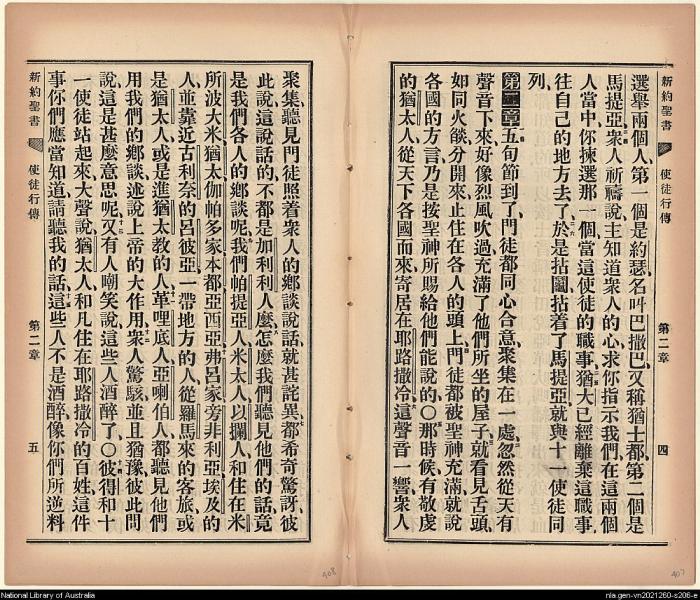 新約聖書 使徒行傳 第二章 四
選舉兩個人、第一個是約瑟名呌巴撒巴又稱猶士都、第二個是
馬提亞、衆人祈禱說、主知道衆人的心、求你指示我們、在這兩個
人當中、你揀選那一個、當這使徒的職事、猶大已經離棄這職事、
往自己的地方去了、於是拈鬮、拈着了馬提亞、就與十一使徒同
列、
第二章 五旬節到了、門徒都同心合意聚集在一處、忽然從天有
聲音下來、好像烈風吹過、充滿了他們所坐的屋子、就看見舌頭
如同火燄、分開來、止住在各人的頭上、門徒都被聖神充滿、就說
各國的方言、乃是按聖神所賜給他們能說的、〇那時候、有敬虔
的猶太人、從天下各國而來、寄居在耶路撒冷、這聲音一響、衆人
聚集、聽見門徒照着衆人的鄉談說話、就甚詫異、都希奇驚訝、彼
此說、這說話的、不都是加利利人麼、怎麼我們聽見他們的話、竟
是我們各人的鄉談呢、我們帕提亞人、米太人、以攔人、和住在米
所波大米、猶太、伽帕多家、本都、亞西亞、弗呂家、旁非利亞、埃及的
人、並靠近古利奈的呂彼亞一帶地方的人、從羅馬來的客旅、或
是猶太人、或是進猶太教的人、革哩底人、亞喇伯人、都聽見他們
用我們的鄉談、述說上帝的大作用、衆人驚駭、並且猶豫、彼此問
說、這是甚麼意思呢、又有人嘲笑說、這些人酒醉了、〇彼得和十
一使徒站起來、大聲說、猶太人、和凡住在耶路撒冷的百姓、這件
事你們應當知道、請聽我的話、這些人不是酒醉、像你們所逆料
新約聖書 使徒行傳 第二章 五
408
407
National Library of Australia
nla.gen-vn2021260-s206-e